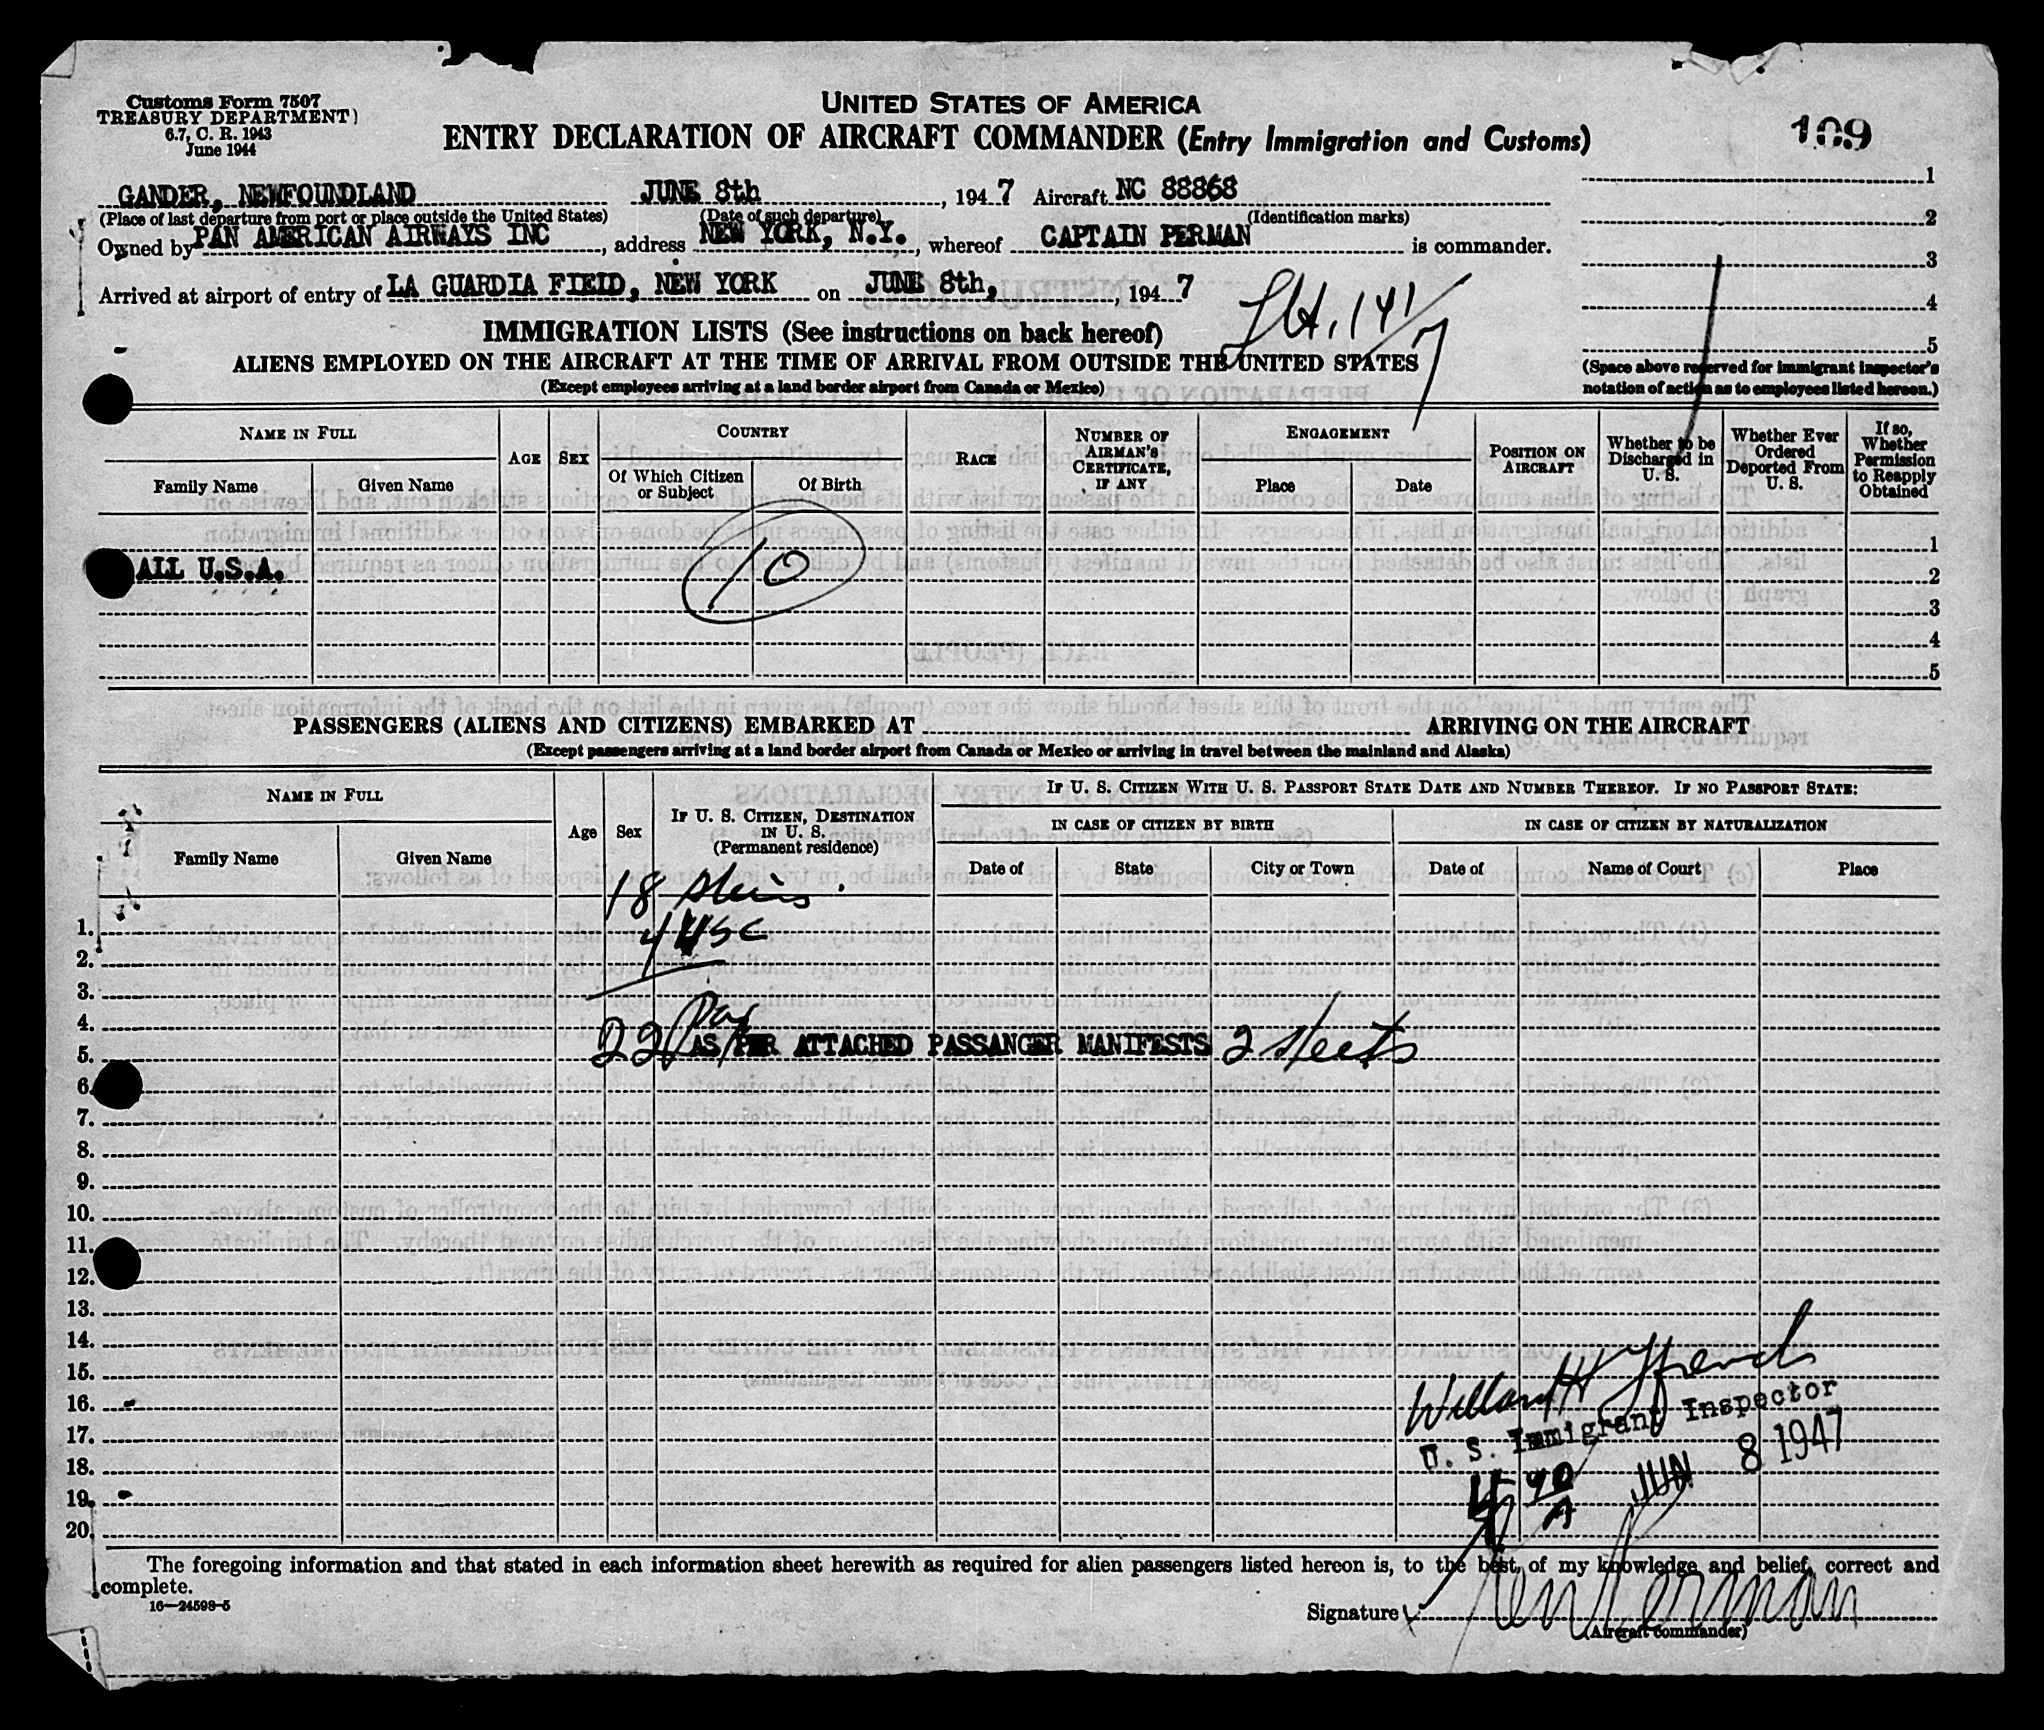 Customs Form 7507
TREASURY DEPARTMENT)
6.7, C. R. 1943
June 1944
UNITED STATES OF AMERICA
ENTRY DECLARATION OF AIRCRAFT COMMANDER (Entry Immigration and Customs)
109
GANDER, NEWFOUNDLAND JUNE 8th, 1947 Aircraft NC 88868
(Place of last departure from port or place outside the United States) (Date of such departure) (Identification marks)
Owned by PAN AMERICAN AIRWAYS INC, address NEW YORK, N.Y., whereof CAPTAIN PERMAN is commander.
Arrived at airport of entry of LA GUARDIA FIEID, NEW YORK on JUNE 8th, , 1947
1
2
3
4
5
(Space above reserved for immigrant inspector's
notation of action as to employees listed hereon.)
141/7
IMMIGRATION LISTS (See instructions on back hereof)
ALIENS EMPLOYED ON THE AIRCRAFT AT THE TIME OF ARRIVAL FROM OUTSIDE THE UNITED STATES
(Except employees arriving at a land border airport from Canada or Mexico)
NAME IN FULL
Family Name
Given Name
AGE
SEX
COUNTRY
Of Which Citizen
or Subject
Of Birth
RACE
NUMBER OF
AIRMAN'S
CERTIFICATE,
IF ANY
ENGAGEMENT
Place
Date
POSITION ON
AIRCRAFT
Whether to be
Discharged in
U. S.
Whether Ever
Ordered
Deported From
U. S.
If so,
Whether
Permission
to Reapply
Obtained
1
ALL U.S.A. 10 2
3
4
5
PASSENGERS (ALIENS AND CITIZENS) EMBARKED AT ARRIVING ON THE AIRCRAFT
(Except passengers arriving at a land border airport from Canada or Mexico or arriving in travel between the mainland and Alaska)
NAME IN FULL
Family Name
Given Name
Age
Sex
IF U. S. CITIZEN, DESTINATION
IN U. S.
(Permanent residence)
IF U. S. CITIZEN WITH U. S. PASSPORT STATE DATE AND NUMBER THEREOF. IF NO PASSPORT STATE:
IN CASE OF CITIZEN BY BIRTH
Date of
State
City or Town
IN CASE OF CITIZEN BY NATURALIZATION
Date of
Name of Court
Place
18 aliens
1. 4 USC
2.
3.
4.
5. 22 Pax AS PER ATTACHED PASSANGER MANIFESTS 2 sheets
6.
7.
8.
9.
10.
11.
12.
13.
14.
15.
16. Willard H French
17. U. S. Immigrant Inspector
18. JUN 8 1947
19.
20.
The foregoing information and that stated in each information sheet herewith as required for alien passengers listed hereon is, to the best of my knowledge and belief, correct and
complete.
16—24598-5
Signature Perman
(Aircraft commander)